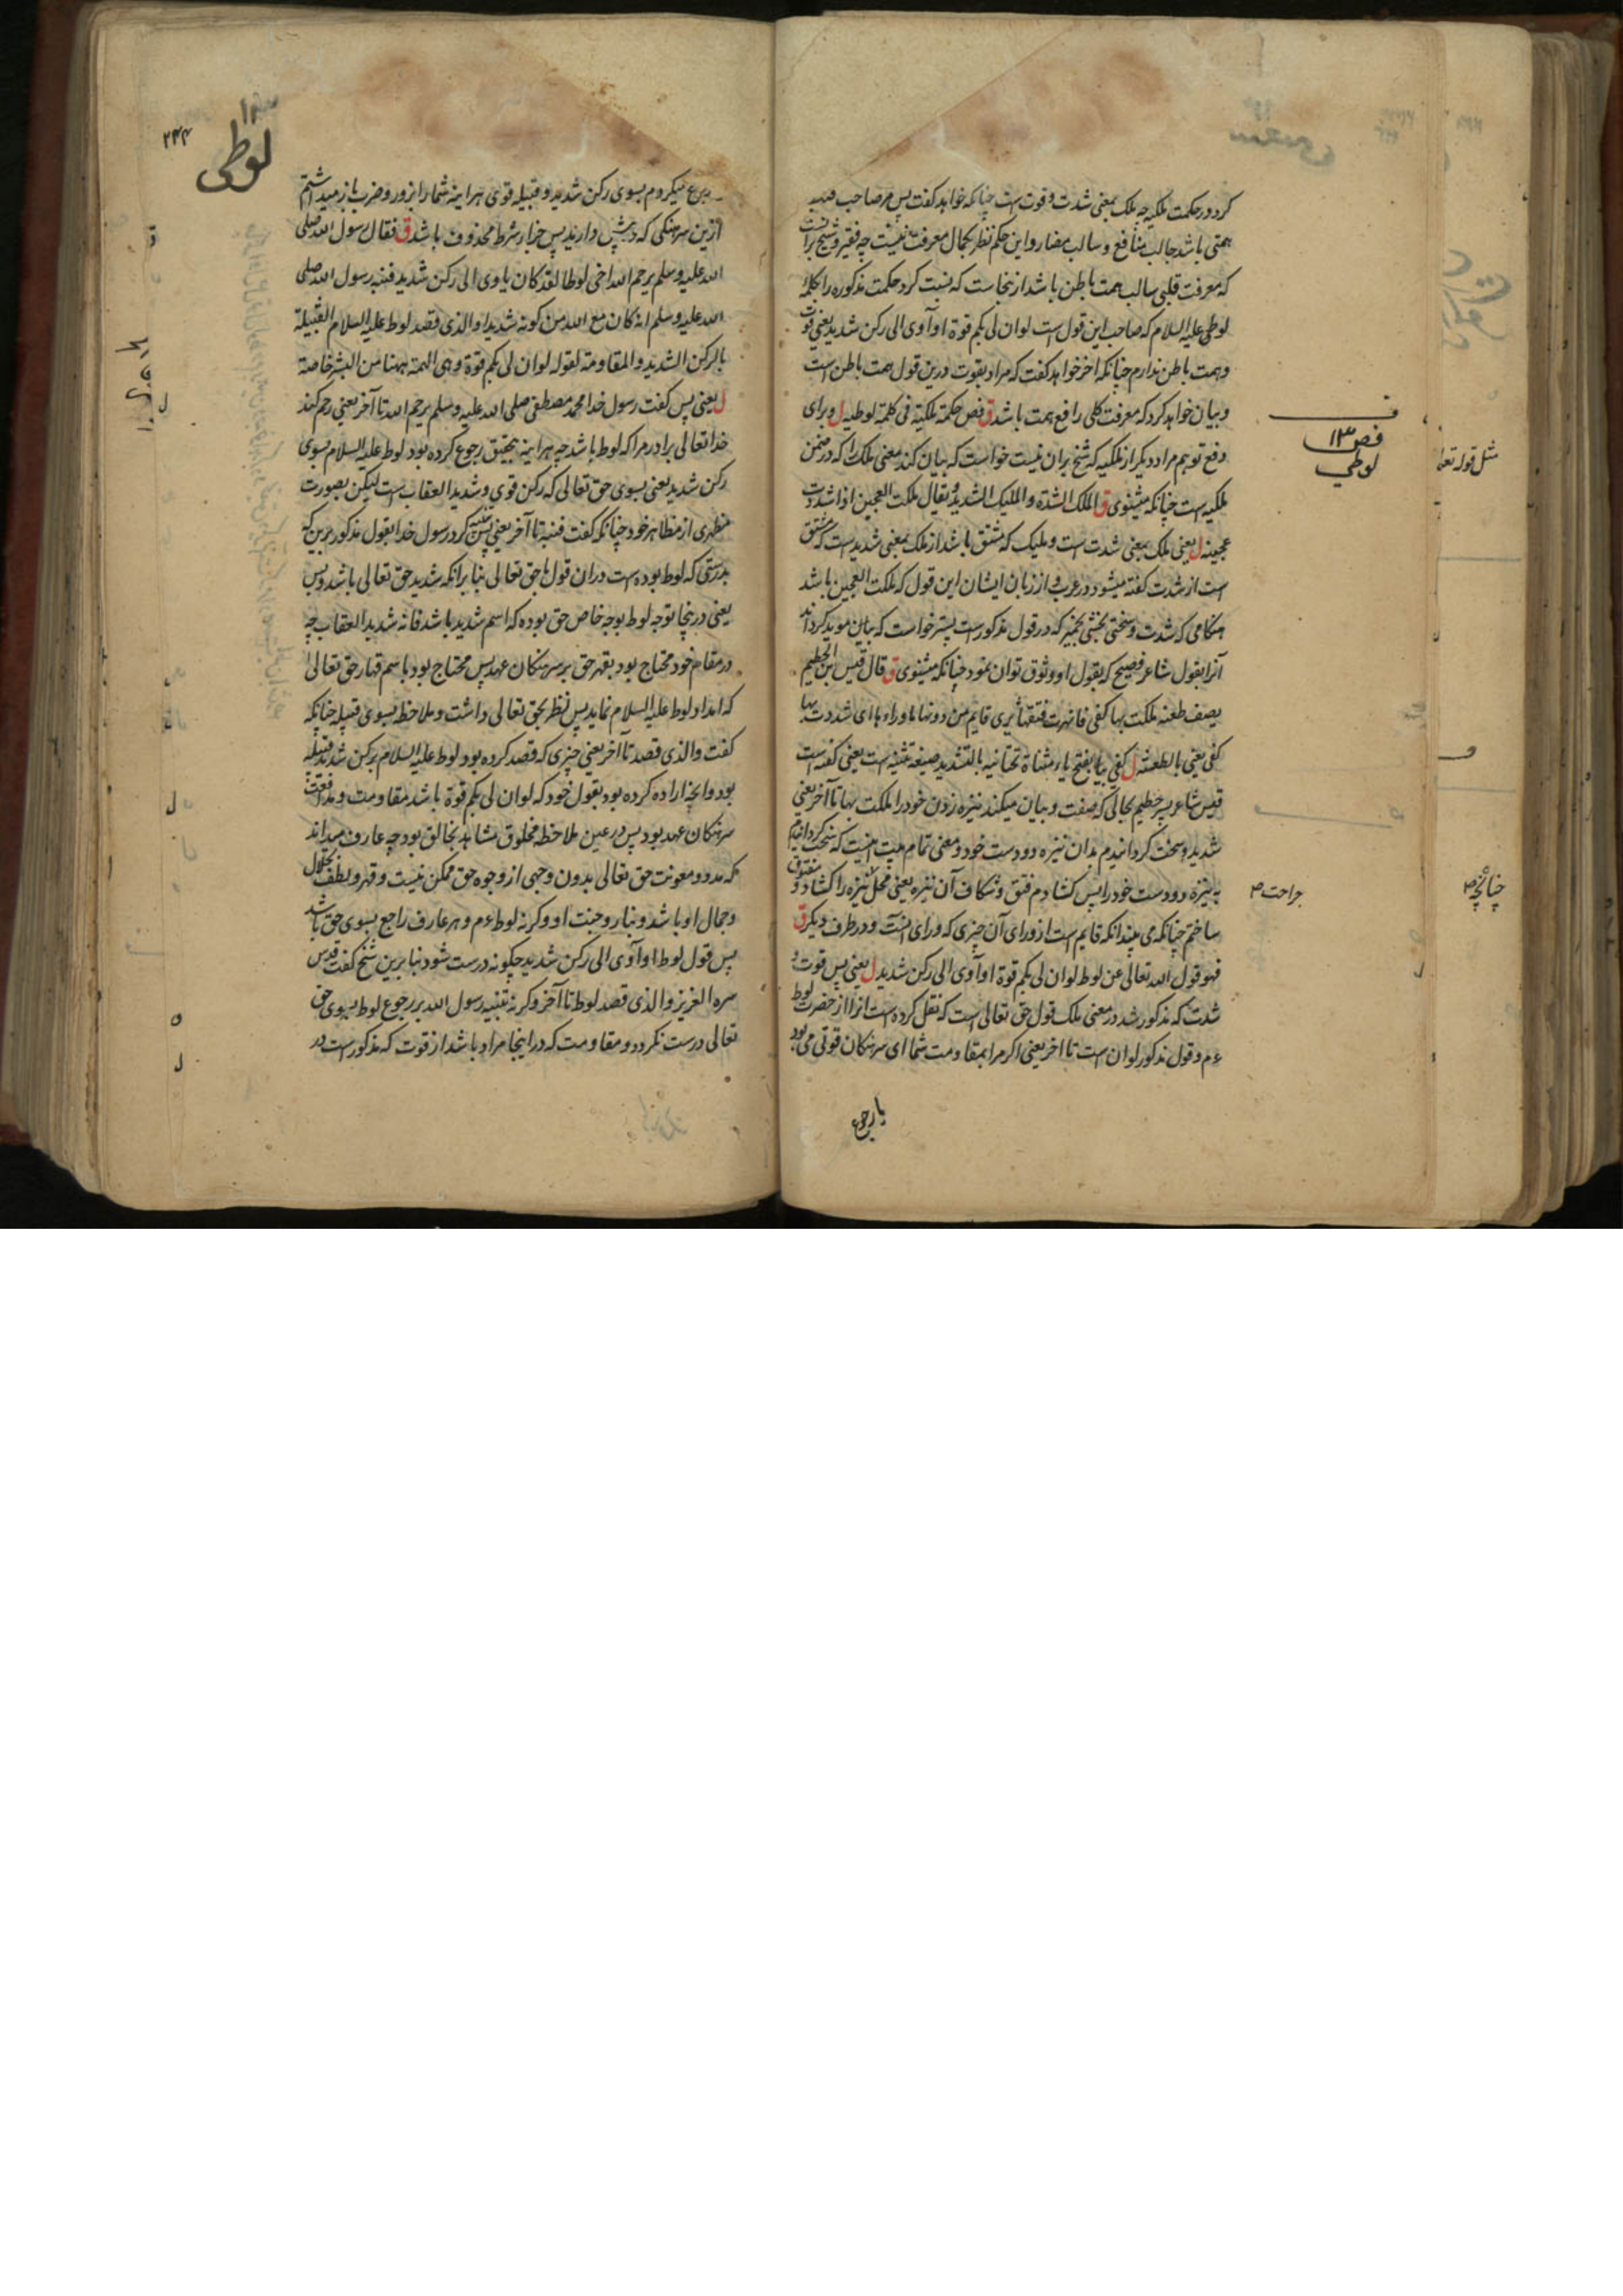 کرد در حکمت ملکیه چه ملک بمعنی شدت و قوت است چنانکه خواهد کفت پس هر صاحب
همتی باشد جالب منافع و سالب مضار و این حکم نظر بکمال معرفت نیست چه فقیر و شیخ
که معرفت قلبی سالب همت باطن باشد ازینجاست که نسبت کرد حکمت مذکوره را بکلمه
لوطی علیه السلام که صاحب این قول است لو ان لی بکم قوة او آوی الی رکن شدید یعنی قوت
و همت باطن ندارم چنانکه اخر خواهد کفت که مراد بقوت درین قول همت باطن است
و بیان خواهد کرد که معرفت کلی رافع همت باشد ق فص حکمة ملکیة فی کلمة لوطیه ل و برای
دفع توهم مراد دیکر از ملکیه که شیخ بران نیست خواست که بیان کند معنی ملک را که در ضمن
ملکیه است چنانکه میشنوی ق الملک الشدة و الملیک الشدید و یقال ملکت العجین اذا شددت
عجینه ل یعنی ملک بمعنی شدت است و ملیک که مشتق باشد از ملک بمعنی شدید است که مشتق
است از شدت کفته میشود در عرب و از زبان ایشان این قول که ملکت العجین باشد
هنکامی که شدت و سختی بخشی بخمیر که در قول مذکور است پستر خواست که بیان موید کرداند
آنرا بقول شاعر فصیح که بقول او وثوق توان نمود چنانکه میشنوی ق قال قیس بن الحطیم
یصف طعنه ملکت بها کفی فانهرت فتقها یری قایم من دونها ماوراءها ای شددت بها
کفی یعنی بالطعنه ل کفی بیا بفتح یاء مثناة تحتانیه بالتشدید صیغه تثنیه است یعنی کفه است
قیس شاعر پسر حطیم بحالی که صفت و بیان میکند نیزه زدن خود را ملکت بها تا آخر یعنی
شدید و سخت کردانیدم بدان نیزه دو دست خود و معنی تمام بیت اینست که سخت کردانیدم
به نیزه دو دست خود را پس کشادم فتق و شکاف آن نیزه یعنی محل نیزه را کشاده و
ساختم چنانکه می بیند انکه قایم است از ورای آن چیزی که ورای انست و در طرف دیکر ق
فهو قول الله تعالی عن لوط لو ان لی بکم قوة او آوی الی رکن شدید ل یعنی پس قوت و
شدت که مذکور شد در معنی ملک قول حق تعالی است که نقل کرده است انرا از حضرت لوط
ع م و قول مذکور لو ان است تا اخر یعنی اکر مرا بمقاومت شما ای سرهنکان قوتی می بود
یا رجوع
فص ۱۳
لوطی
جراحت ص
مثل قوله تعا
چنانچه ص
لوطی
۱۳
۲۴۴
رجوع میکردم بسوی رکن شدید و قبیله قوی هراینه شما را بزور و ضرب باز میداشتم
ازین سرهنکی که در پیش دارید پس جزاء شرط محذوف باشد ق فقال رسول الله صلی
الله علیه و سلم یرحم الله اخی لوطا لقد کان یاوی الی رکن شدید فنبه رسول الله صلی
الله علیه و سلم انه کان مع الله من کونه شدیدا و الذی قصد لوط علیه السلام القبیلة
بالرکن الشدید و المقاومة لقوله لو ان لی بکم قوة و هی الهمة ههنا من البشر خاصة
ل یعنی پس کفت رسول خدا محمد مصطفی صلی الله علیه و سلم یرحم الله تا آخر یعنی رحم کند
خدا تعالی برادر مرا که لوط باشد چه هراینه بتحقیق رجوع کرده بود لوط علیه السلام بسوی
رکن شدید یعنی بسوی حق تعالی که رکن قوی و شدید العقاب است لیکن بصورت
مظهری از مظاهر خود چنانکه کفت فنبه تا آخر یعنی پس تنبیه کرد رسول خدا بقول مذکور برین که
بدرستی که لوط بوده است دران قول با حق تعالی بنا برانکه شدید حق تعالی باشد و پس
یعنی درینجا توجه لوط بوجه خاص حق بوده که اسم شدید باشد فانه شدید العقاب چه
در مقام خود محتاج بود بقهر حق بر سرهنکان عهد پس محتاج بود باسم قهار حق تعالی
که امداد لوط علیه السلام نماید پس نظر بحق تعالی داشت و ملاحظه بسوی قبیله چنانکه
کفت و الذی قصد تا آخر یعنی چیزی که قصد کرده بود لوط علیه السلام برکن شدید قبیله
بود و انچه اراده کرده بود بقول خود که لو ان لی بکم قوة باشد مقاومت و مدافعت
سرهنکان عهد بود پس در عین ملاحظه مخلوق مشاهد بخالق بود چه عارف میداند
که مدد و معونت حق تعالی بدون وجهی از وجوه حق ممکن نیست و قهر و لطف جلال
و جمال او باشد و بنا روجنت او و کرنه لوط ع م و هر عارف راجع بسوی حق باشد
پس قول لوط او آوی الی رکن شدید چکونه درست شود بنا برین شیخ کفت قدس
سره العزیز و الذی قصد لوط تا آخر و کرنه تنبیه رسول الله بر رجوع لوط بسوی حق
تعالی درست نکردد و مقاومت که در اینجا مراد باشد از قوت که مذکور است در